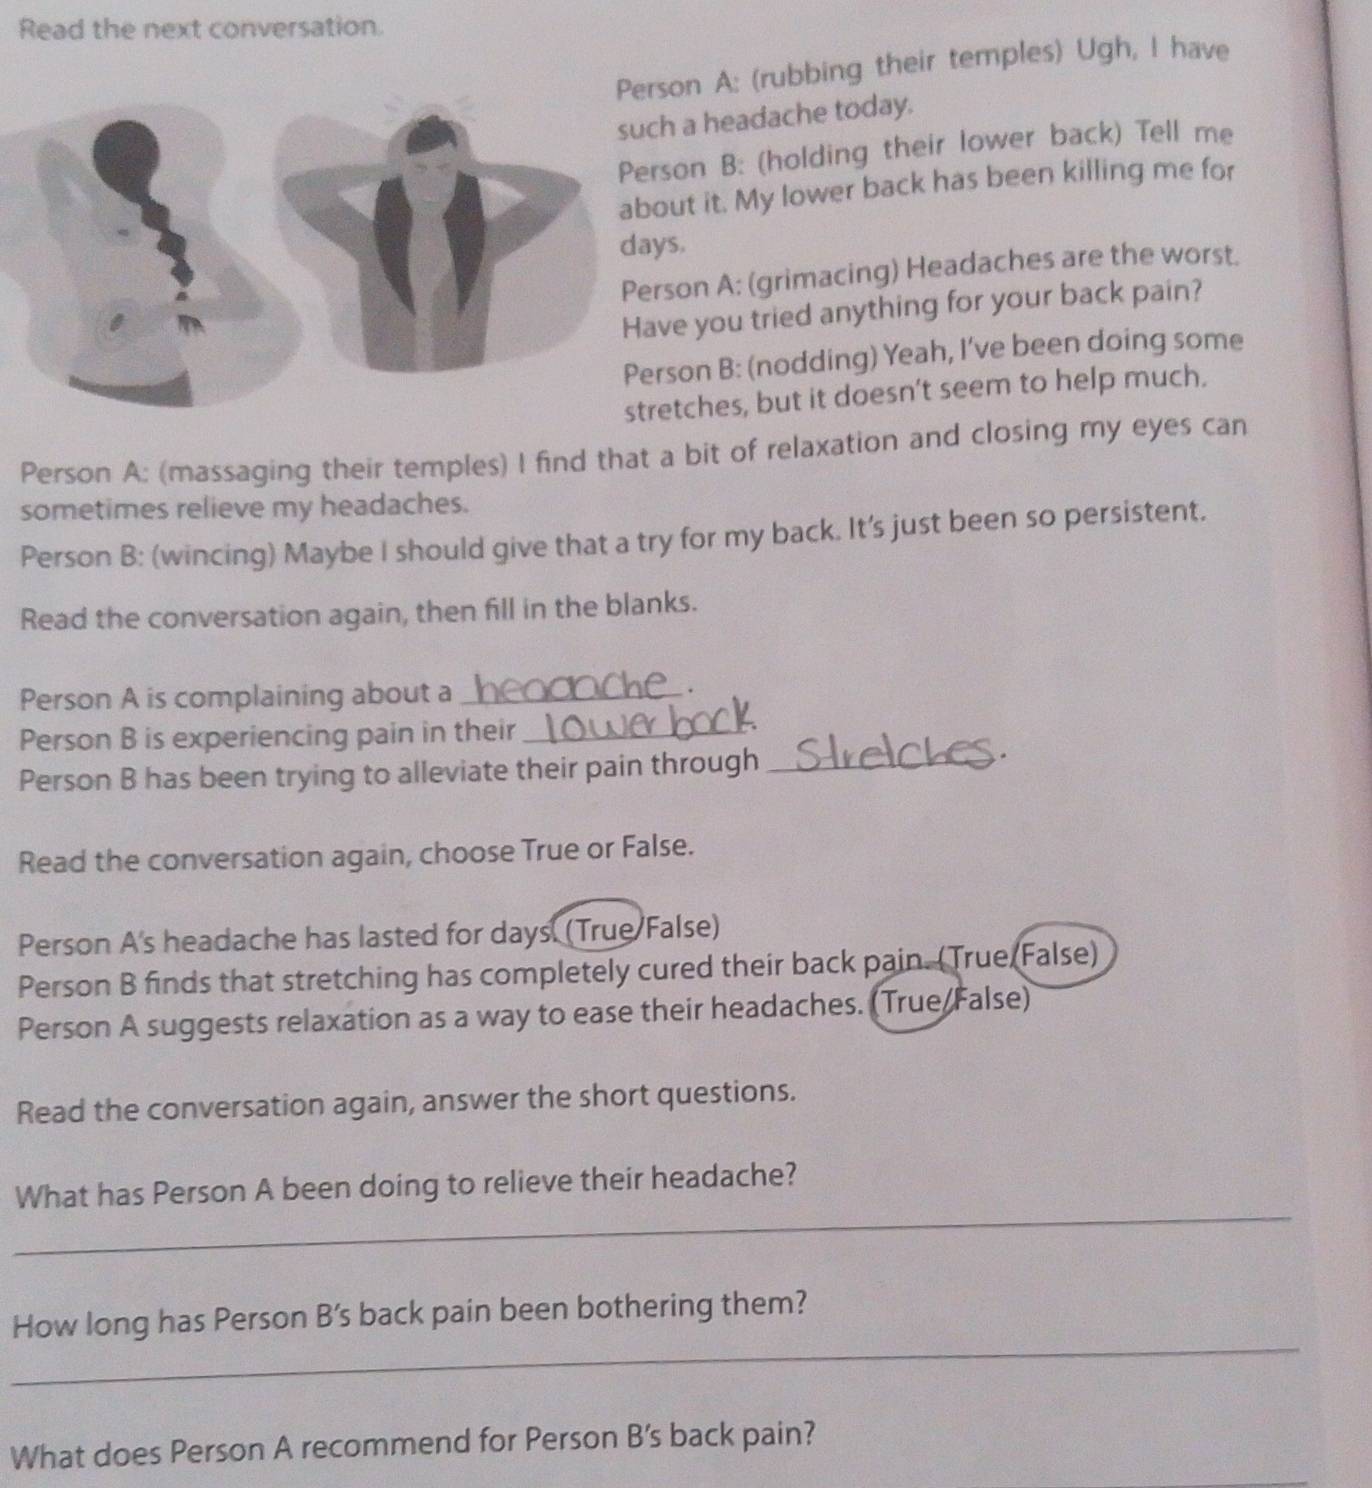 Read the next conversation.
Person A: (rubbing their temples) Ugh, I have
such a headache today.
Person B: (holding their lower back) Tell me
about it. My lower back has been killing me for
days.
Person A: (grimacing) Headaches are the worst.
Have you tried anything for your back pain?
Person B: (nodding) Yeah, I've been doing some
stretches, but it doesn't seem to help much.
Person A: (massaging their temples) I find that a bit of relaxation and closing my eyes can
sometimes relieve my headaches.
Person B: (wincing) Maybe I should give that a try for my back. It's just been so persistent.
Read the conversation again, then fill in the blanks.
Person A is complaining about a headache.
Person B is experiencing pain in their lower back.
Person B has been trying to alleviate their pain through Stretches.
Read the conversation again, choose True or False.
Person A's headache has lasted for days. (True/False)
Person B finds that stretching has completely cured their back pain. (True/False)
Person A suggests relaxation as a way to ease their headaches. (True/False)
Read the conversation again, answer the short questions.
What has Person A been doing to relieve their headache?
How long has Person B's back pain been bothering them?
What does Person A recommend for Person B's back pain?